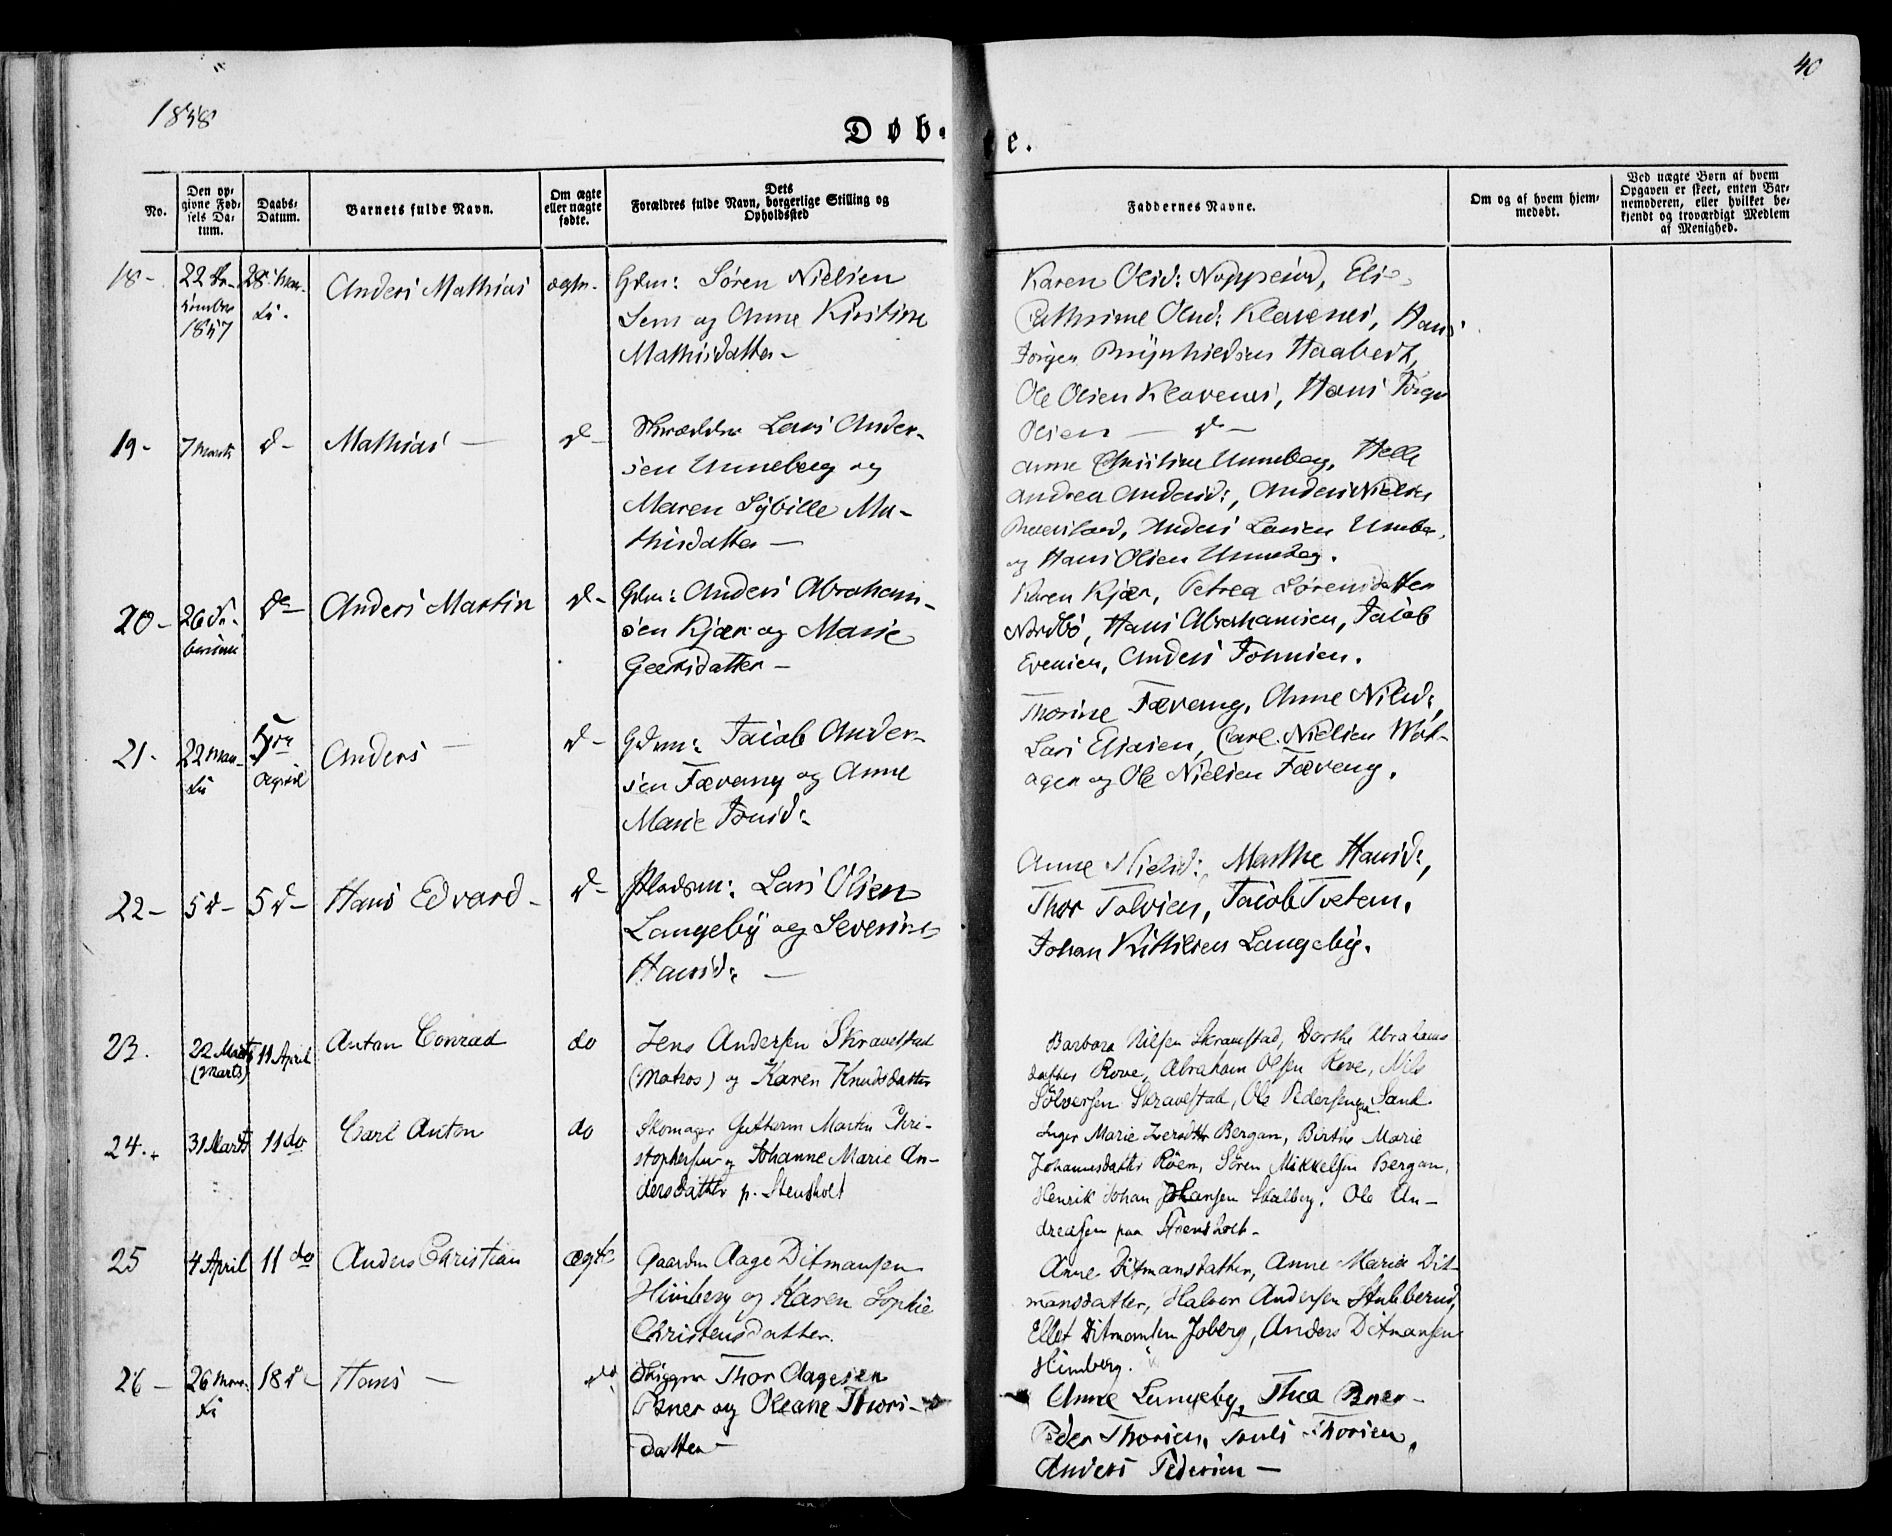 40
1858
Døb- e.
No.
Den op-
givne Fød-
sels Da-
tum.
Daabs-
Datum.
Barnets fulde Navn.
Om ægte
eller uægte
fødte.
Dets
Forældres fulde Navn, borgerlige Stilling og
Opholdssted
Faddernes Navne.
Om og af hvem hjem-
medøbt.
Ved uægte Børn af hvem
Opgaven er skeet, enten Bar-
nemoderen, eller hvilket be-
kjendt og troværdigt Medlem
af Menighed.
18-
22 De-
cember
1857
28 Mar-
ti.
Anders Mathias
ægte-
Gdm: Søren Nielsen
Sem og Anne Kirstine
Mathisdatter-
Karen Olsd: Elis
Cathrine Olsd: Klavenes, Hans
Jørgen Haabeth,
Ole Olsen Klavenes, Hans Jørgen
Olsen - d-
19-
7 Marti
d-
Mathias -
d-
Skrædder Lars Ander-
sen Unneberg og
Maren Sybille Ma-
thisdatter -
Anne Christine Unneberg, Helle
Andrea Andersd:, Anders Nielsen
Anders Larsen Unneberg,
og Hans Olsen Unneberg.
20-
26 Fe-
bruari
do-
Anders Martin
d-
Gdm: Anders Abraham-
sen Kjær og Marie
Geertsdatter -
Karen Kjær, Petrea Sørensdatter
Nordbö, Hans Abrahamsen, Jacob
Evensen, Anders Tonnsen.
21-
22 Mar-
ti
5te
April
Anders -
d-
Gdm: Jacob Ander-
sen Fævang og Anne
Marie Jonsd:
Thorine Fævang, Anne Nilsd:,
Lars Eliasen, Carl Nielsen
og Ole Nielsen Fævang.
22-
5 d-
5 d-
Hans Edvard-
d-
Pladsm: Lars Olsen
Langeby og Severine
Hansd: -
Anne Nielsd:, Marthe Hansd:,
Thor Jacob Tvetem.
Johan Kittilsen Langeby.
23.
22 Marts
(Marts)
11 April
Anton Conrad
do
Jens Andersen Skravestad
(Matros) og Karen Knudsdatter
Barbara Nilsen Skravestad, Dorthe Abrahams
datter Rove, Abraham Olsen Rove, Nils
Sölversen Skravestad, Ole Pedersen Sand
24.
31 Marts
11 do
Carl Anton
do
Skomager Guthorm Martin Chri-
stophersen og Johanne Marie An-
dersdatter p. Stensholt
Inger Marie Bergan, Birthe Marie
Johannesdatter Röen, Sören Mikkelsen Bergan,
Henrik Johan Johansen Skalberg. Ole An-
dreasen paa Stensholt-
25
4 April
11 do
Anders Christian
ægte
Gaardm Aage Ditmansen
Himberg og Karen Sophie
Christensdatter.
Anne Ditmansdatter, Anne Marie Dit-
mansdatter, Halvor Andersen Stubberud,
Ellef Ditmansen Joberg, Anders Ditmansen
Himberg.
26-
26 Mar-
ti
18 d-
Hans -
do
Skipper Thor Aagesen
og Oleane Thors-
datter-
Anne Langeby, Thea
Peder Thorsen, Thorsen,
Anders Pedersen -